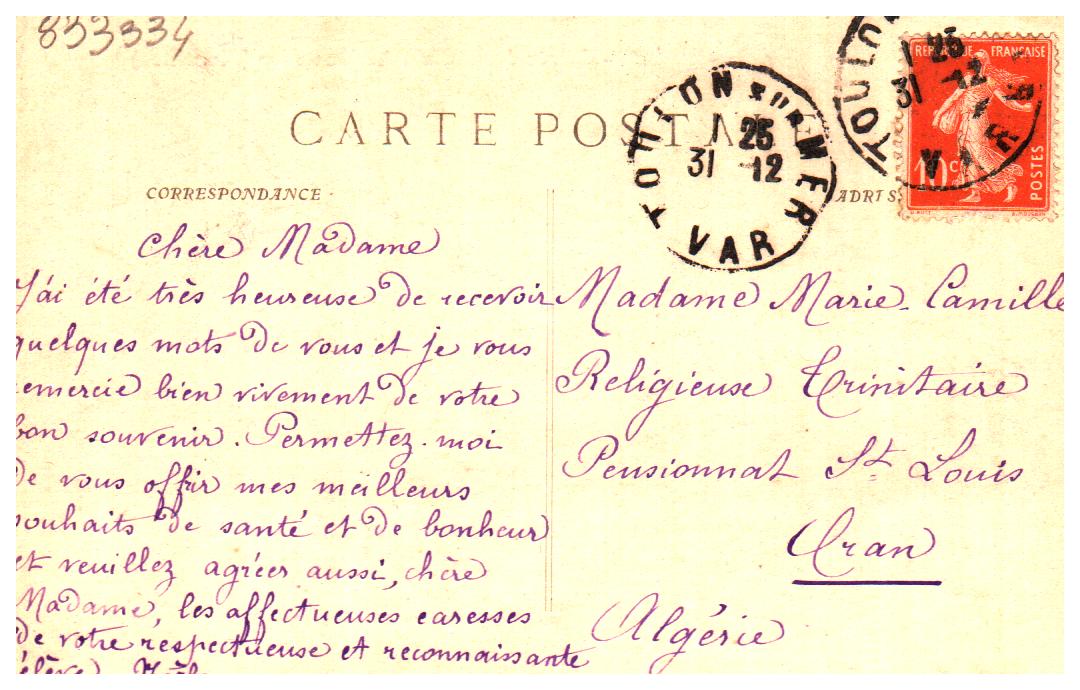 853334
CARTE POSTALE
TOULON sur MER
1 25
31 -12
VAR
TOULO
1 25
31 -12
VAR
REPUBLIQUE FRANÇAISE
10 c
POSTES
CORRESPONDANCE
ADRES
Chère Madame
J'ai été très heureuse de recevoir
quelques mots de vous et je vous
emercie bien vivement de votre
bon souvenir. Permettez-moi
de vous offrir mes meilleurs
souhaits de santé et de bonheur
et veuillez agréer aussi, chère
Madame, les affectueuses caresses
de votre respectueuse et reconnaissante
élève
Madame Marie-Camille
Religieuse Trinitaire
Pensionnat St Louis
Oran
Algérie